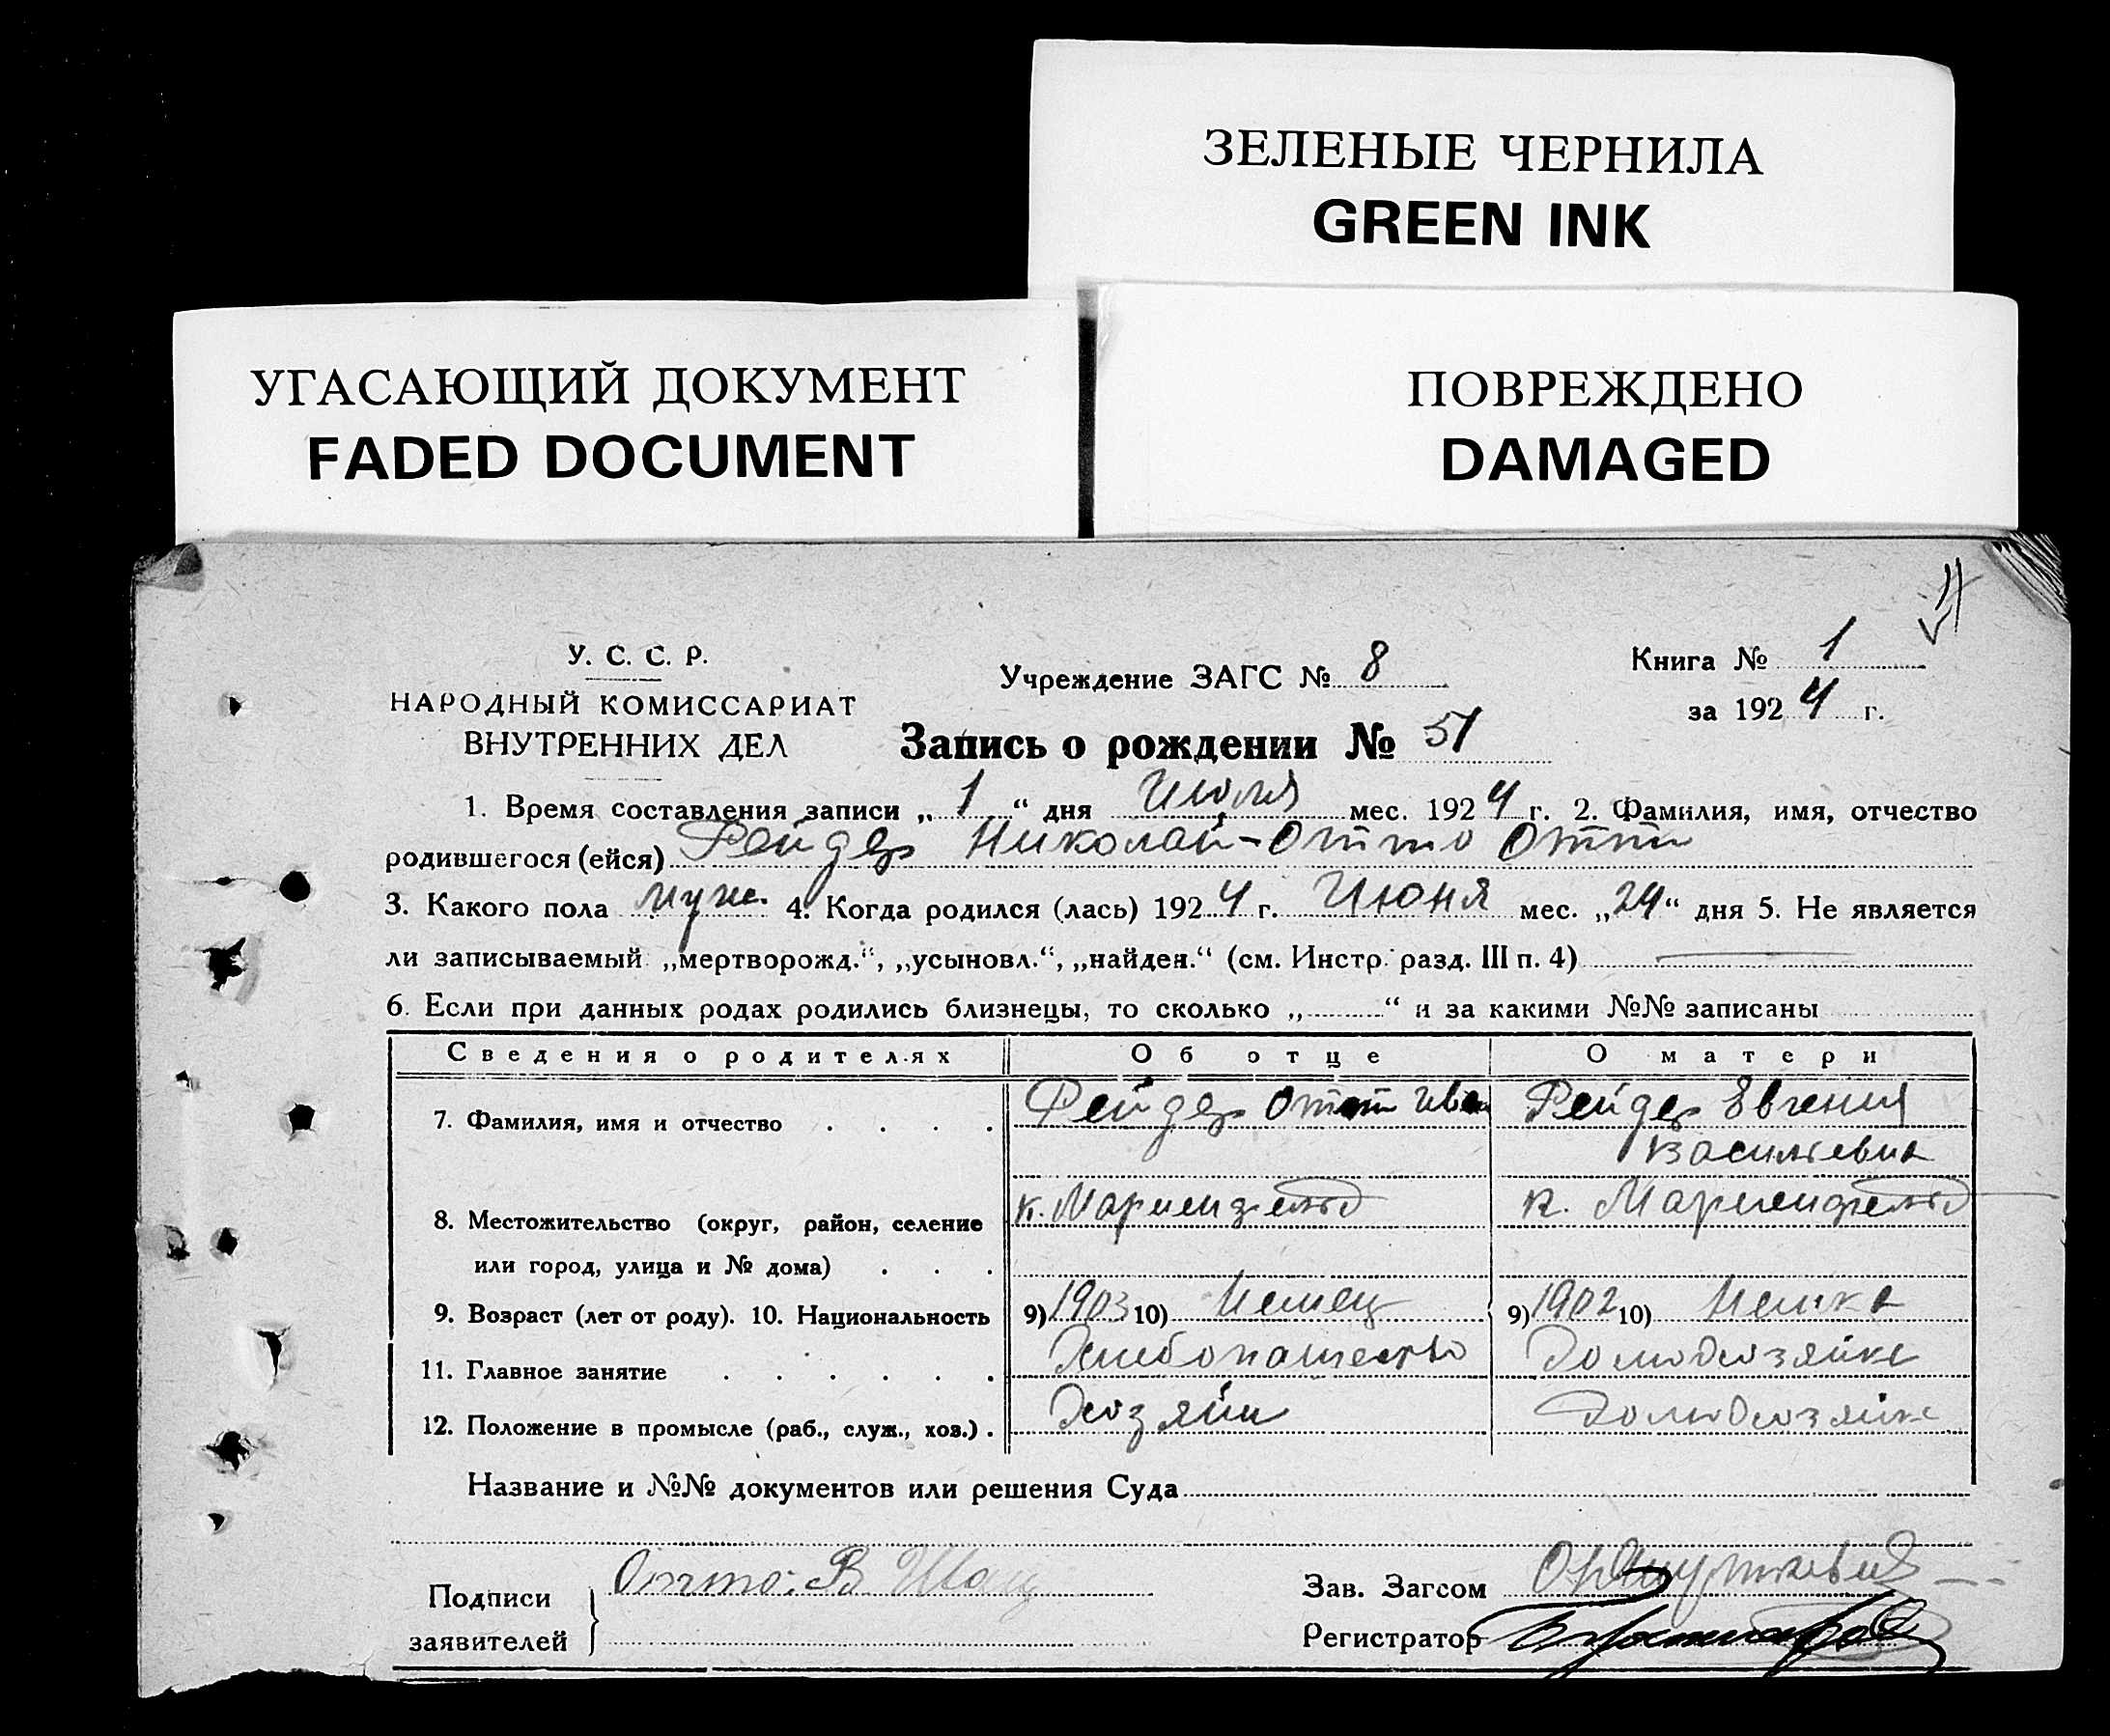 ЗЕЛЕНЫЕ ЧЕРНИЛА
GREEN INK
УГАСАЮЩИЙ ДОКУМЕНТ
FADED DOCUMENT
ПОВРЕЖДЕНО
DAMAGED
У. С. С. Р.
НАРОДНЫЙ КОМИССАРИАТ
ВНУТРЕННИХ ДЕЛ
Учреждение ЗАГС № 8
Книга № 1
за 1924 г.
Запись о рождении № 51
1. Время составления записи „1“ дня Июля мес. 1924 г. 2. Фамилия, имя, отчество
родившегося (ейся) Рейдер Николай-Отто Отто
3. Какого пола муж. 4. Когда родился (лась) 1924 г. Июня мес. „24“ дня 5. Не является
ли записываемый „мертворожд.“, „усыновл.“, „найден.“ (см. Инстр. разд. III п. 4)
6. Если при данных родах родились близнецы, то сколько „ “ и за какими №№ записаны
Сведения о родителях Об отце О матери
7. Фамилия, имя и отчество Рейдер Отто Иван Рейдер Евгения
Васильевна
8. Местожительство (округ, район, селение к. Мариенфельд к. Мариенфельд
или город, улица и № дома)
9. Возраст (лет от роду). 10. Национальность 9) 1903 10) Немец 9) 1902 10) Немка
11. Главное занятие Хлебопашество Домохозяйка
12. Положение в промысле (раб., служ., хоз.) Хозяин Домохозяйка
Название и №№ документов или решения Суда
Подписи Отто В
заявителей
Зав. Загсом
Регистратор